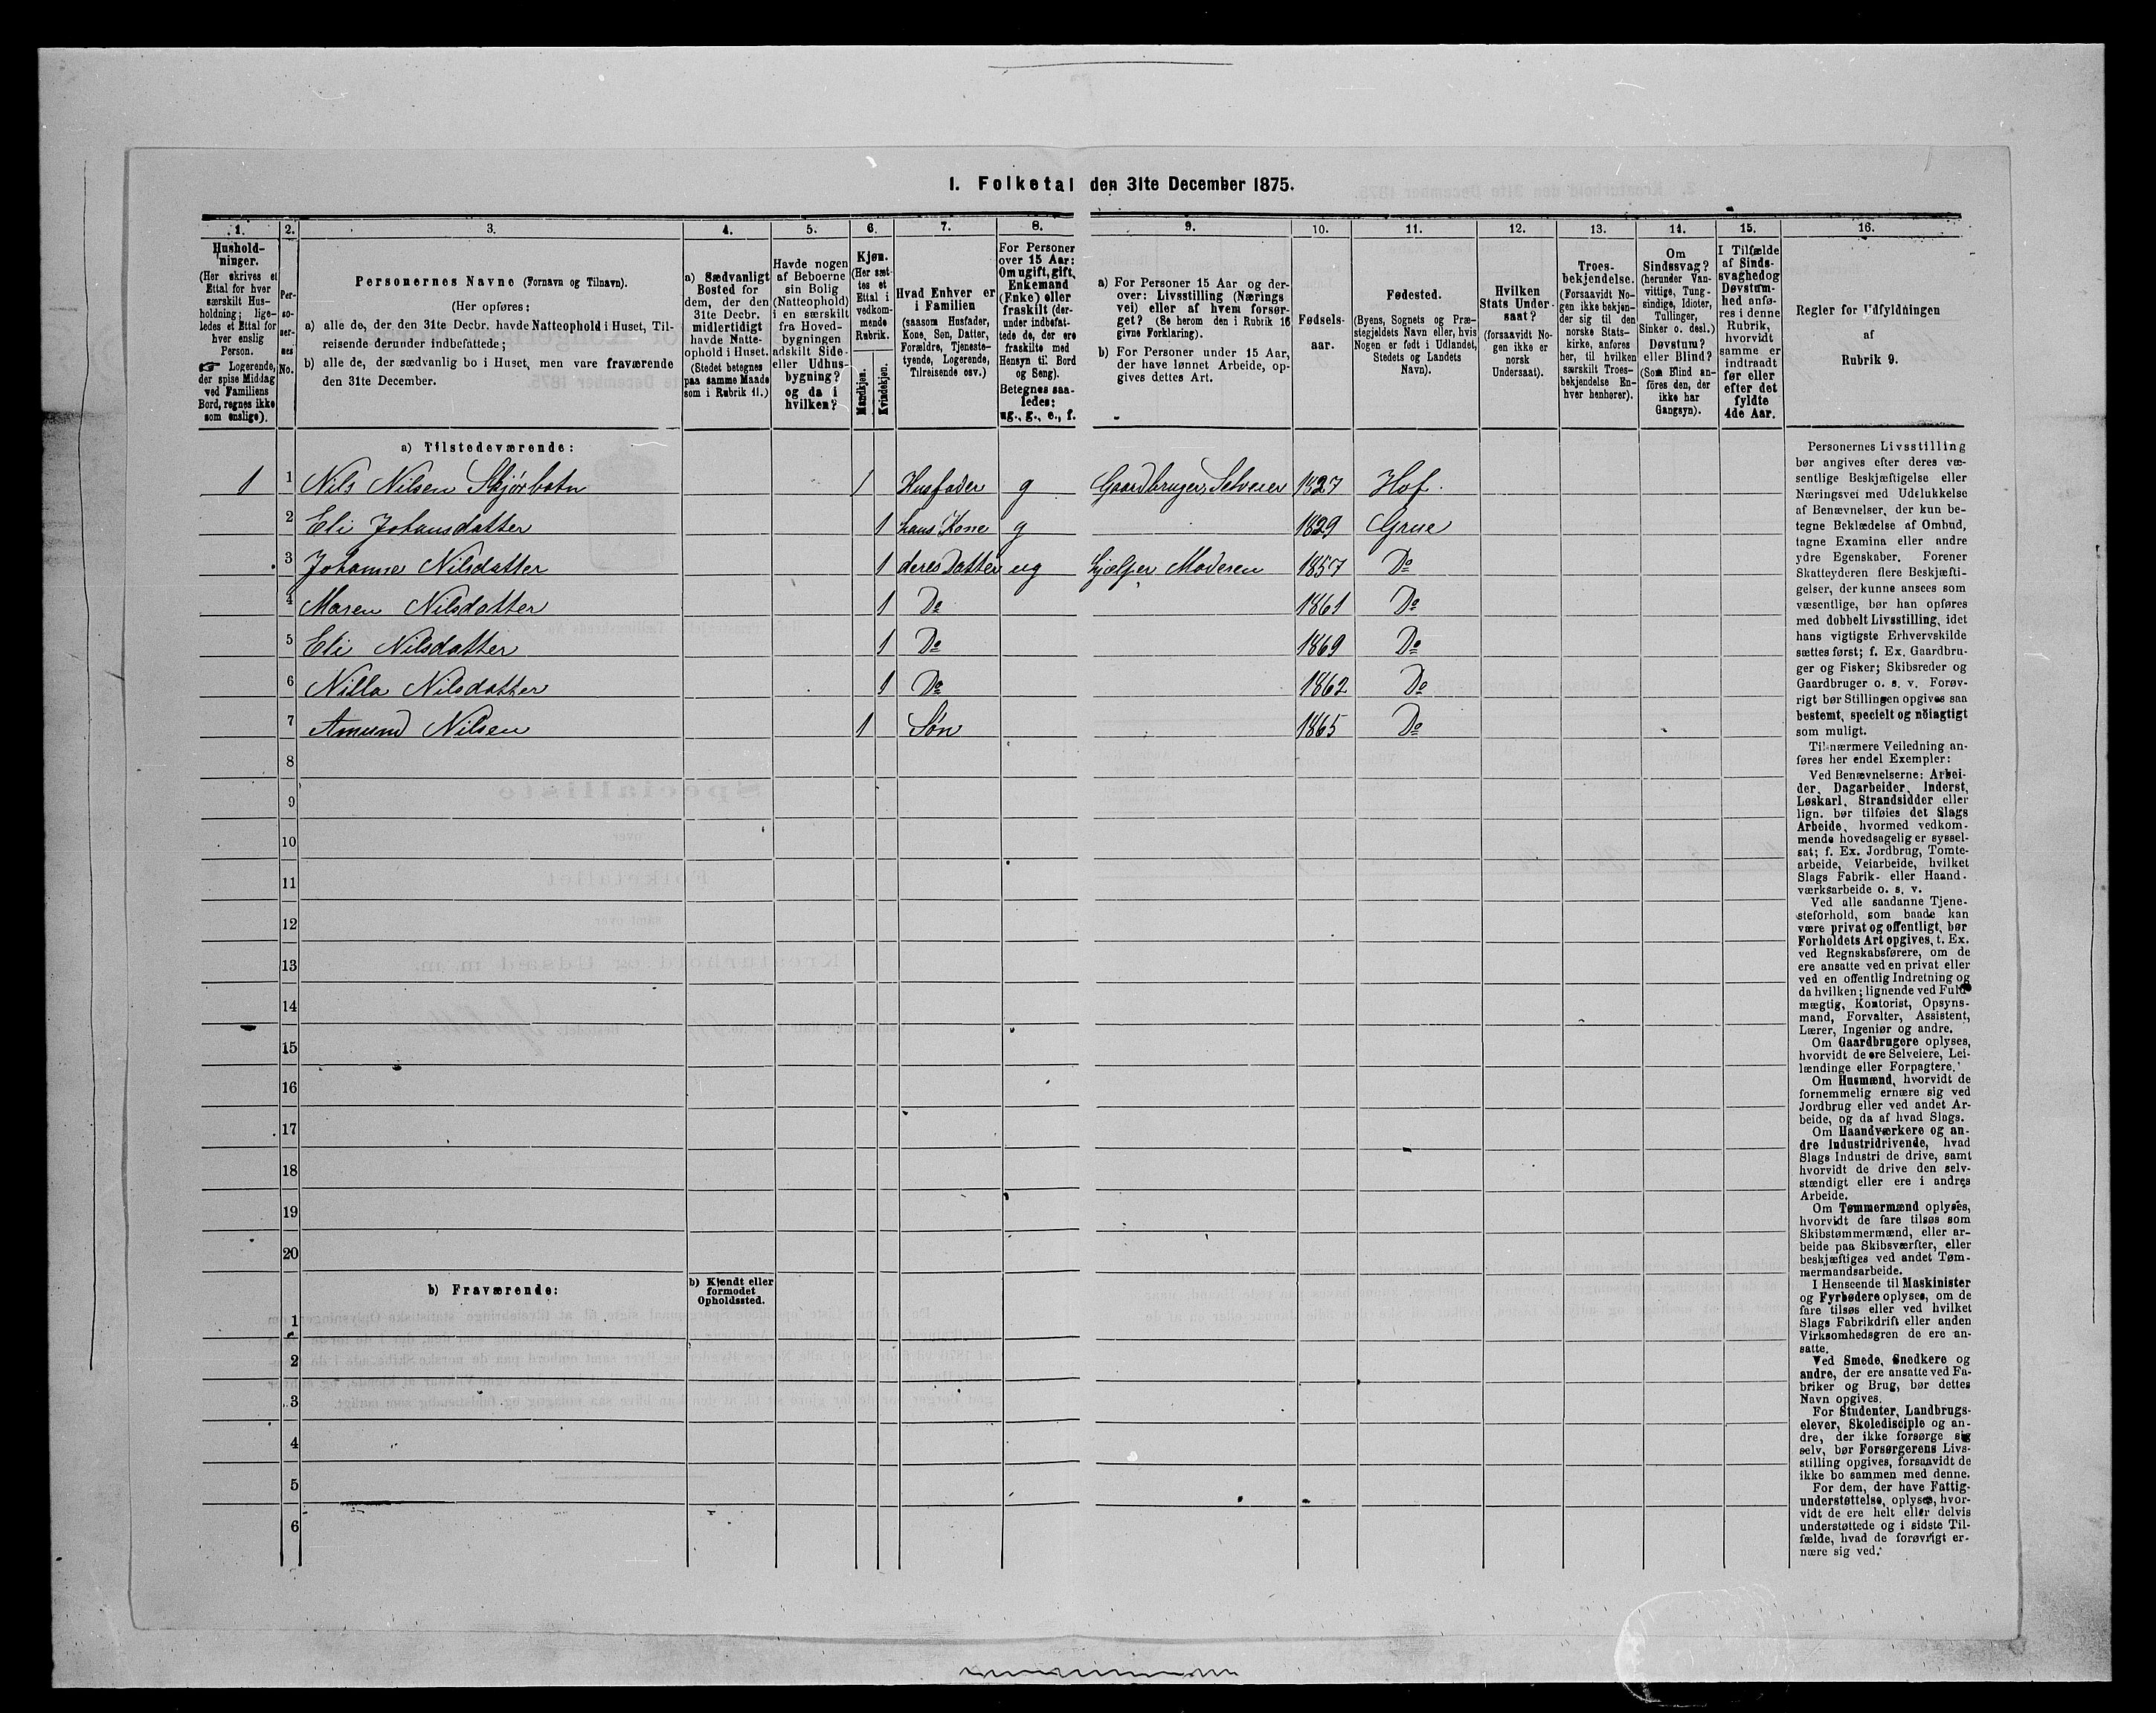 1. Folketal den 31te December 1875.
1.
2.
3.
4.
5.
6.
7.
8.
9.
10.
11.
12.
13.
14.
15.
16.
Hushold-
ninger.
(Her skrives et
Ettal for hver
særskilt Hus-
holdning; lige-
ledes et Ettal for
hver enslig
Person.
☞ Logerende,
der spise Middag
ved Familiens
Bord, regnes ikke
som enslige).
Per-
so-
ner-
nes
No.
Personernes Navne (Fornavn og Tilnavn).
(Her opføres:
a) alle de, der den 31te Decbr. havde Natteophold i Huset, Til-
reisende derunder indbefattede;
b) alle de, der sædvanlig bo i Huset, men vare fraværende
den 31te December.
a) Sædvanligt
Bosted for
dem, der den
31te Decbr.
midlertidigt
havde Natte-
ophold i Huset.
(Stedet betegnes
paa samme Maade
som i Rubrik 11.)
Havde nogen
af Beboerne
sin Bolig
(Natteophold)
i en særskilt
fra Hoved-
bygningen
adskilt Side-
eller Udhus-
bygning?
og da i
hvilken?
Kjøn.
(Her sæt-
tes et
Ettal i
vedkom-
mende
Rubrik.
Mandkjøn.
Kvindekjøn.
Hvad Enhver er
i Familien
(saasom Husfader,
Kone, Søn, Datter,
Forældre, Tjeneste-
tyende, Logerende,
Tilreisende osv.)
For Personer
over 15 Aar:
Om ugift, gift,
Enkemand
(Enke) eller
fraskilt (der-
under indbefat-
tede de, der ere
fraskilte med
Hensyn til Bord
og Seng).
Betegnes saa-
ledes:
ug., g., e., f.
a) For Personer 15 Aar og der-
over: Livsstilling (Nærings
vei) eller af hvem forsør-
get? (Se herom den i Rubrik 16
givne Forklaring).
b) For Personer under 15 Aar,
der have lønnet Arbeide, op-
gives dettes Art.
Fødsels-
aar.
Fødested.
(Byens, Sognets og Præ-
stegjeldets Navn eller, hvis
Nogen er født i Udlandet,
Stedets og Landets
Navn).
Hvilken
Stats Under-
saat?
(forsaavidt No-
gen ikke er
norsk
Undersaat).
Troes-
bekjendelse.
(Forsaavidt No-
gen ikke bekjen-
der sig til den
norske Stats-
kirke, anføres
her, til hvilken
særskilt Troes-
bekjendelse En-
hver henhører).
Om
Sindssvag?
(herunder Van-
vittige, Tung-
sindige, Idioter,
Tullinger,
Sinker o. desl.)
Døvstum?
eller Blind?
(Som Blind an-
føres den, der
ikke har
Gangsyn).
I Tilfælde
af Sinds-
svaghed og
Døvstum-
hed anfø-
res i denne
Rubrik,
hvorvidt
samme er
indtraadt
før eller
efter det
fyldte
4de Aar.
Regler for Udfyldningen
af
Rubrik 9.
a) Tilstedeværende:
1 1 Nils Nilsen Skjørbotn 1 Husfader g Gaardbruger, Selveier 1827 Hof.
2 Eli Johansdatter 1 hans Kone g 1829 Grue
3 Johanne Nilsdatter 1 deres Datter ug hjælper Moderen 1857 Do
4 Maren Nilsdatter 1 Do 1861 Do
5 Eli Nilsdatter 1 Do 1869 Do
6 Nilla Nilsdatter 1 Do 1862 Do
7 Amund Nilsen 1 Søn 1865 Do
8
9
10
11
12
13
14
15
16
17
18
19
20
b) Fraværende:
b) Kjendt eller
formodet
Opholdssted.
1
2
3
4
5
6
Personernes Livsstilling
bør angives efter deres væ-
sentlige Beskjæftigelse eller
Næringsvei med Udelukkelse
af Benævnelser, der kun be-
tegne Beklædelse af Ombud,
tagne Examina eller andre
ydre Egenskaber. Forener
Skatteyderen flere Beskjæfti-
gelser, der kunne ansees som
væsentlige, bør han opføres
med dobbelt Livsstilling, idet
hans vigtigste Erhvervskilde
sættes først; f. Ex. Gaardbru-
ger og Fisker; Skibsreder og
Gaardbruger o. s. v. Forøv-
rigt bør Stillingen opgives saa
bestemt, specielt og nöiagtigt
som muligt.
Til nærmere Veiledning an-
føres her endel Exempler:
Ved Benævnelserne: Arbei-
der, Dagarbeider, Inderst,
Løskarl, Strandsidder eller
lign. bør tilføies det Slags
Arbeide, hvormed vedkom-
mende hovedsagelig er syssel-
sat; f. Ex. Jordbrug, Tomte-
arbeide, Veiarbeide, hvilket
Slags Fabrik- eller Haand-
værksarbeide o. s. v.
Ved alle saadanne Tjene-
steforhold, som baade kan
være privat og offentligt, bør
Forholdets Art opgives, t. Ex.
ved Regnskabsførere, om de
ere ansatte ved en privat eller
ved en offentlig Indretning og
da hvilken; lignende ved Fuld-
mægtig, Kontorist, Opsyns-
mand, Forvalter, Assistent,
Lærer, Ingeniør og andre.
Om Gaardbrugere oplyses,
hvorvidt de ere Selveiere, Lei-
lændinge eller Forpagtere.
Om Husmænd, hvorvidt de
fornemmelig ernære sig ved
Jordbrug eller ved andet Ar-
beide, og da af hvad Slags.
Om Haandværkere og an-
dre Industridrivende, hvad
Slags Industri de drive, samt
hvorvidt de drive den selv-
stændigt eller ere i andres
Arbeide.
Om Tømmermænd oplyses,
hvorvidt de fare tilsøs som
Skibstømmermænd, eller ar-
beide paa Skibsværfter, eller
beskjæftiges ved andet Tøm-
mermandsarbeide.
I Henseende til Maskinister
og Fyrbødere oplyses, om de
fare tilsøs eller ved hvilket
Slags Fabrikdrift eller anden
Virksomhedsgren de ere an-
satte.
Ved Smede, Snedkere og
andre, der ere ansatte ved Fa-
briker og Brug, bør dettes
Navn opgives.
For Studenter, Landbrugs-
elever, Skoledisciple og an-
dre, der ikke forsørge sig
selv, bør Forsørgerens Livs-
stilling opgives, forsaavidt de
ikke bo sammen med denne.
For dem, der have Fattig-
understøttelse, oplyses, hvor-
vidt de ere helt eller delvis
understøttede og i sidste Til-
fælde, hvad de forøvrigt er-
nære sig ved.